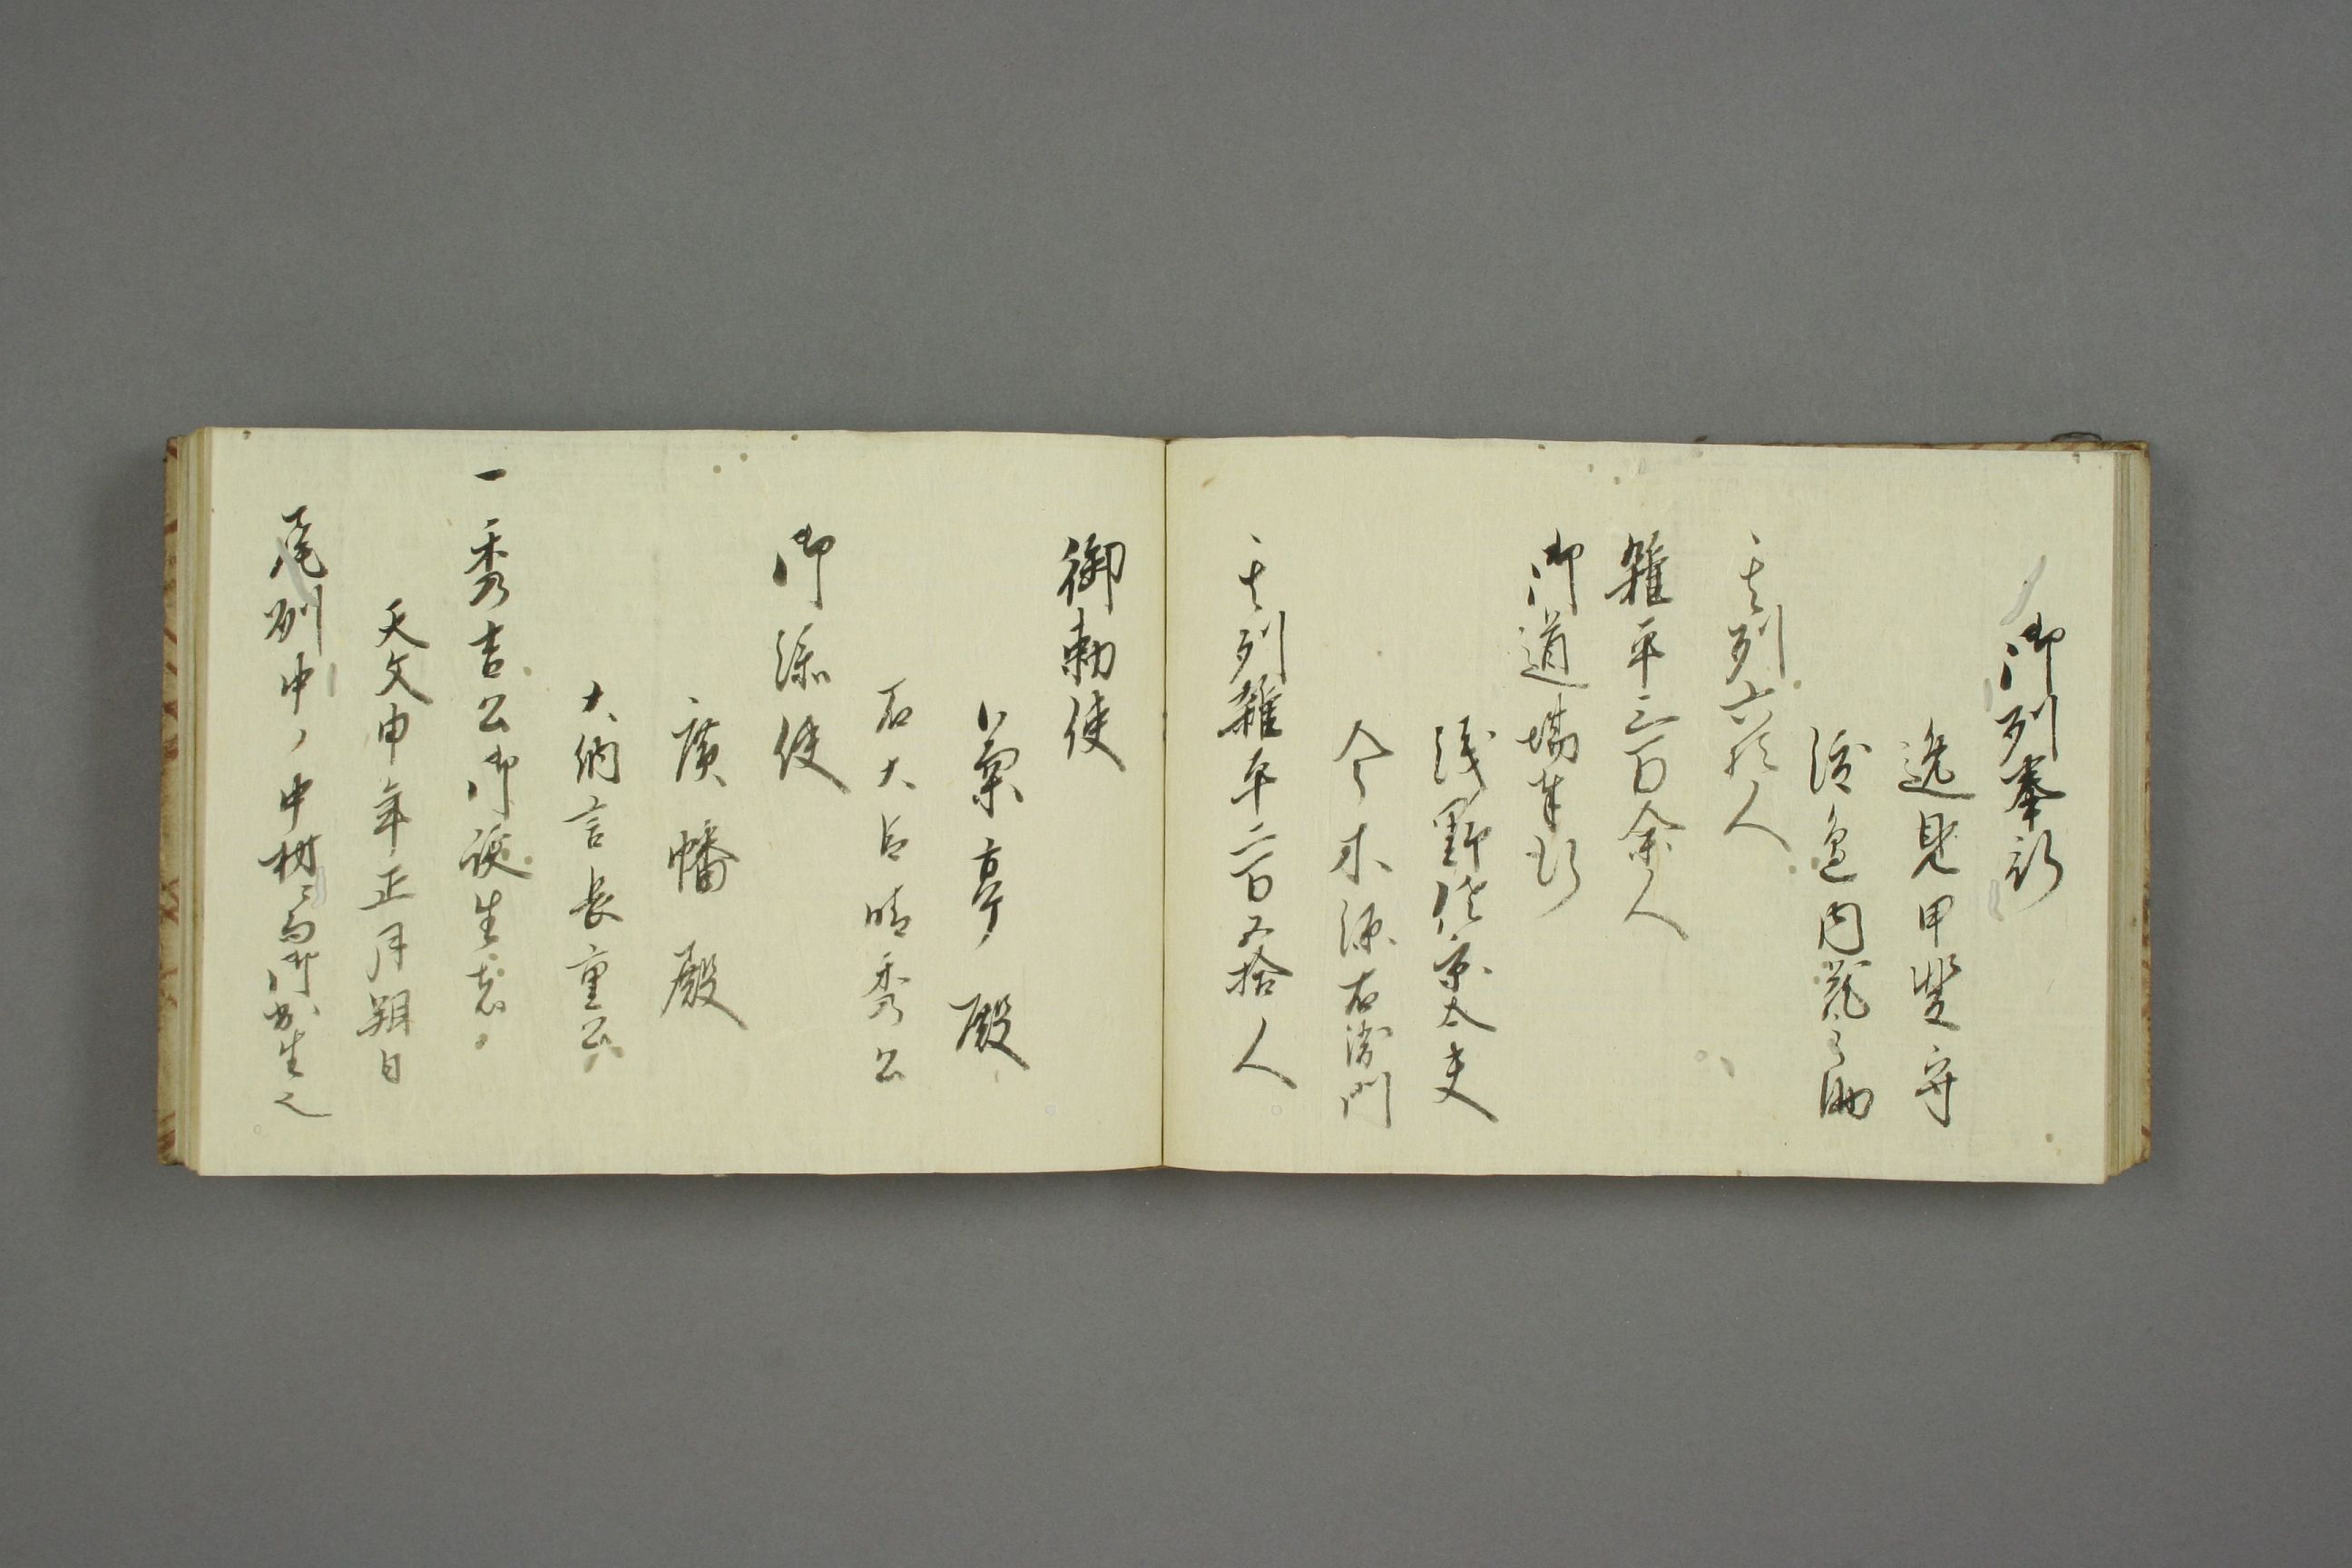 御列奉行
逸見甲斐守
渡邉内蔵之助
其列六拾人
雑卒三百余人
御道場奉行
浅野他京太夫
今木源右衛門
其列雑卒二百五拾人
御勅使
菊亭殿
右大臣晴秀公
御添使
廣幡殿
大納言長重公
一秀吉公御誕生者
天文申年正月朔日
尾州中ノ中村ニ而御出生也